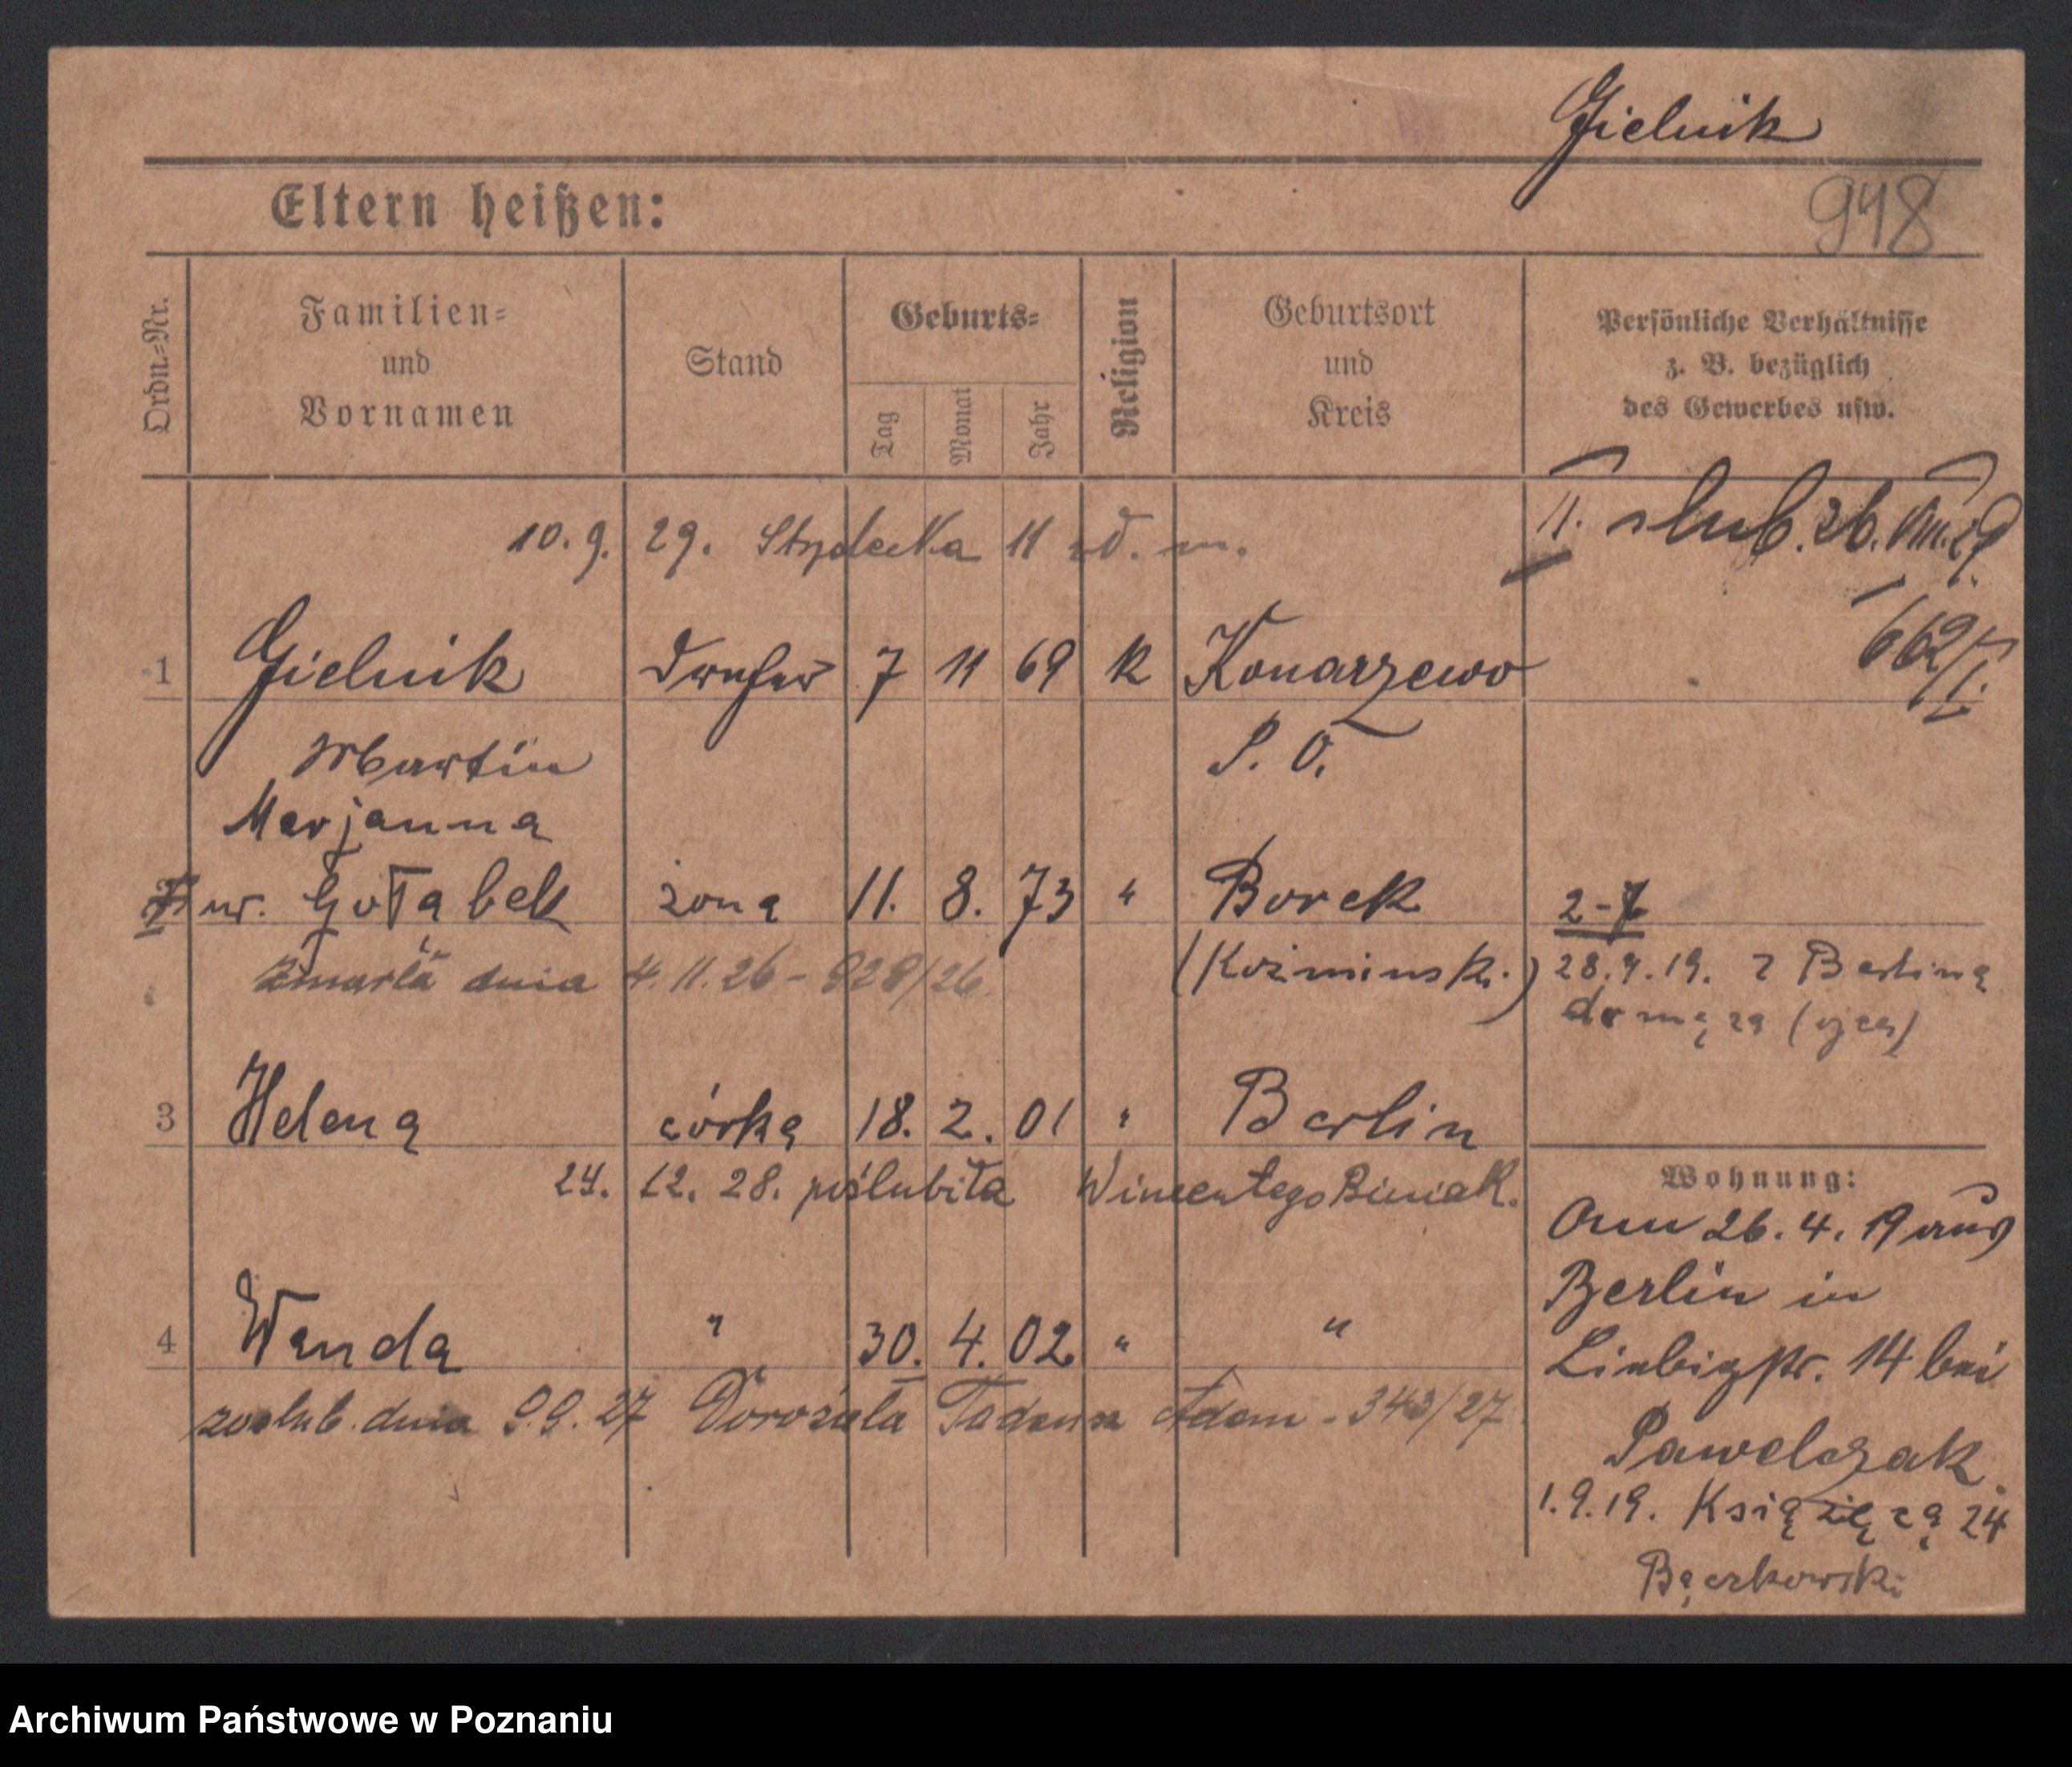 Gielnik
948
Eltern heißen:
Ordn.-Nr.
Familien-
und
Vornamen
Stand
Geburts-
Tag
Monat
Jahr
Religion
Geburtsort
und
Kreis
Persönliche Verhältnisse
z. B. bezüglich
des Gewerbes usw.
10. 9. 29. 11 m.
II. slub. 26. VIII. 29
662/I.
1 Gielnik 7 11 69 k Konarzewo
P. O.
Martin
Marjanna
ur. Gołąbek żona 11. 8. 73 " Borek 2-
zmarła dnia 4. 11. 26 - 928/26 (Koźminsk.) 28. 9. 19. z Berlina
do męża (ojca)
3 Helena córka 18. 2. 01 " Berlin
24. 12. 28. poślubiła Wincentego Biniak.
Wohnung:
Am 26. 4. 19 aus
Berlin in
4 Wanda " 30. 4. 02 " "
Liebigstr. 14 bei
zoslub. dnia 9. 9. 27 Dorożała Adam - 343/27
Pawelczak
1. 9. 19. Książęca 24